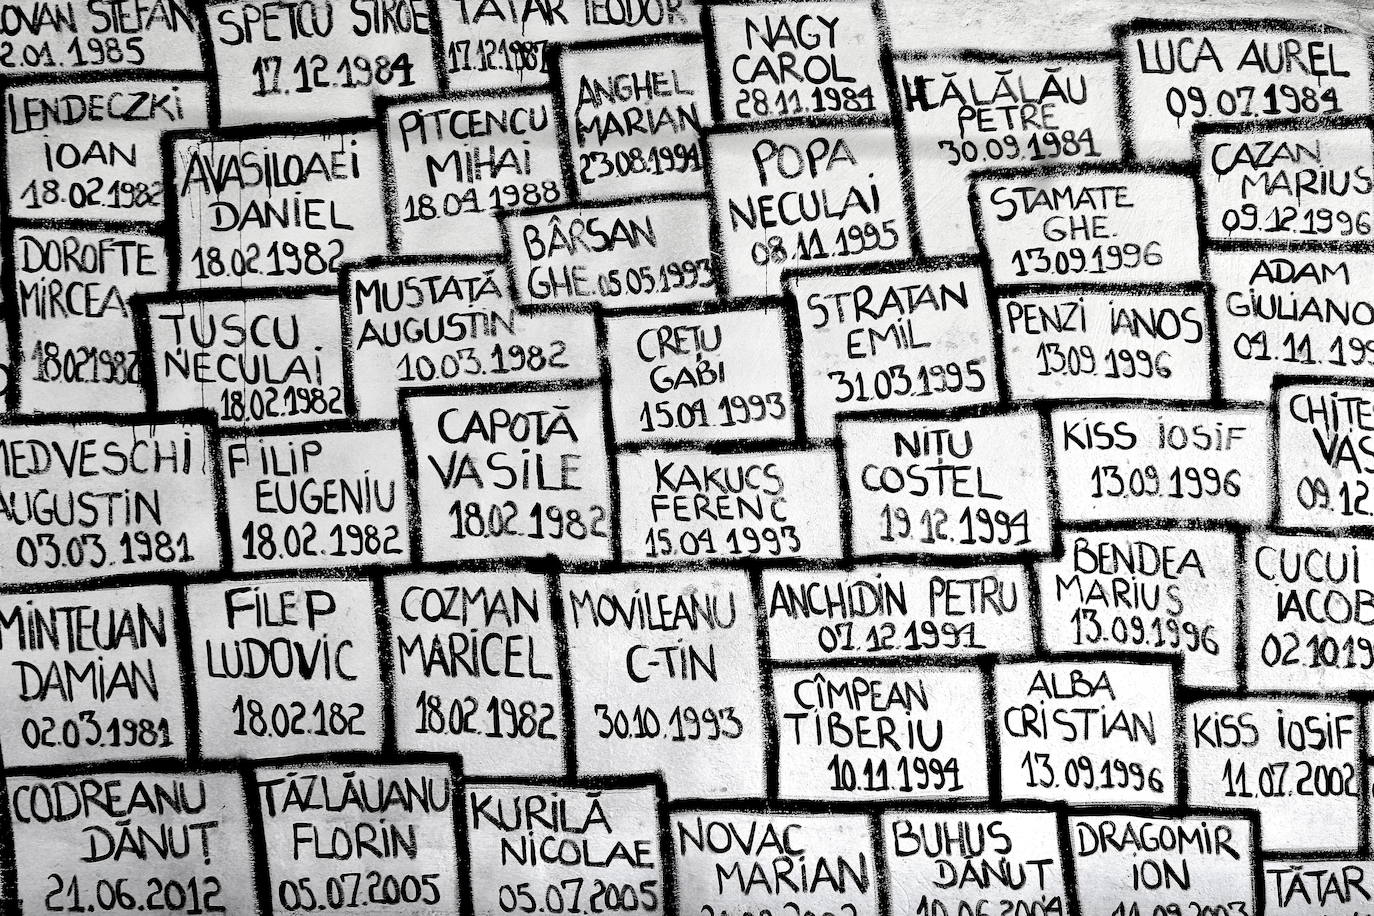 STEFAN
2.01.1985
SPETCU SIROE
17.12.1984
TĂTAR TEODOR
17.12.1987
NAGY
CAROL
28.11.1984
HĂLĂLĂU
PETRE
30.09.1984
LUCA AUREL
09.07.1984
LENDECZKI
IOAN
18.02.1982
AVASILOAEI
DANIEL
18.02.1982
PITCENCU
MIHAI
18.04.1988
ANGHEL
MARIAN
23.08.1994
POPA
NECULAI
08.11.1995
STAMATE
GHE.
13.09.1996
CAZAN
MARIUS
09.12.1996
DOROFTE
MIRCEA
18.02.1982
TUSCU
NECULAI
18.02.1982
MUSTAȚĂ
AUGUSTIN
10.03.1982
BÂRSAN
GHE. 05.05.1993
CREȚU
GABI
15.04.1993
STRATAN
EMIL
31.03.1995
PENZI IANOS
13.09.1996
ADAM
GIULIANO
04.11.199
MEDVESCHI
AUGUSTIN
03.03.1981
FILIP
EUGENIU
18.02.1982
CAPOTĂ
VASILE
18.02.1982
KAKUCS
FERENC
15.04.1993
NIȚU
COSTEL
19.12.1994
KISS IOSIF
13.09.1996
CHITE
VAS
09.12.
MINTEUAN
DAMIAN
02.03.1981
FILEP
LUDOVIC
18.02.182
COZMAN
MARICEL
18.02.1982
MOVILEANU
C-TIN
30.10.1993
ANCHIDIN PETRU
07.12.1994
BENDEA
MARIUS
13.09.1996
CUCUI
IACOB
02.10.19
CÎMPEAN
TIBERIU
10.11.1994
ALBA
CRISTIAN
13.09.1996
KISS IOSIF
11.07.2002
CODREANU
DĂNUȚ
21.06.2012
TĂZLĂUANU
FLORIN
05.07.2005
KURILĂ
NICOLAE
05.07.2005
NOVAC
MARIAN
BUHUS
DĂNUT
10.06.2004
DRAGOMIR
ION
11.09.2003
TĂTAR